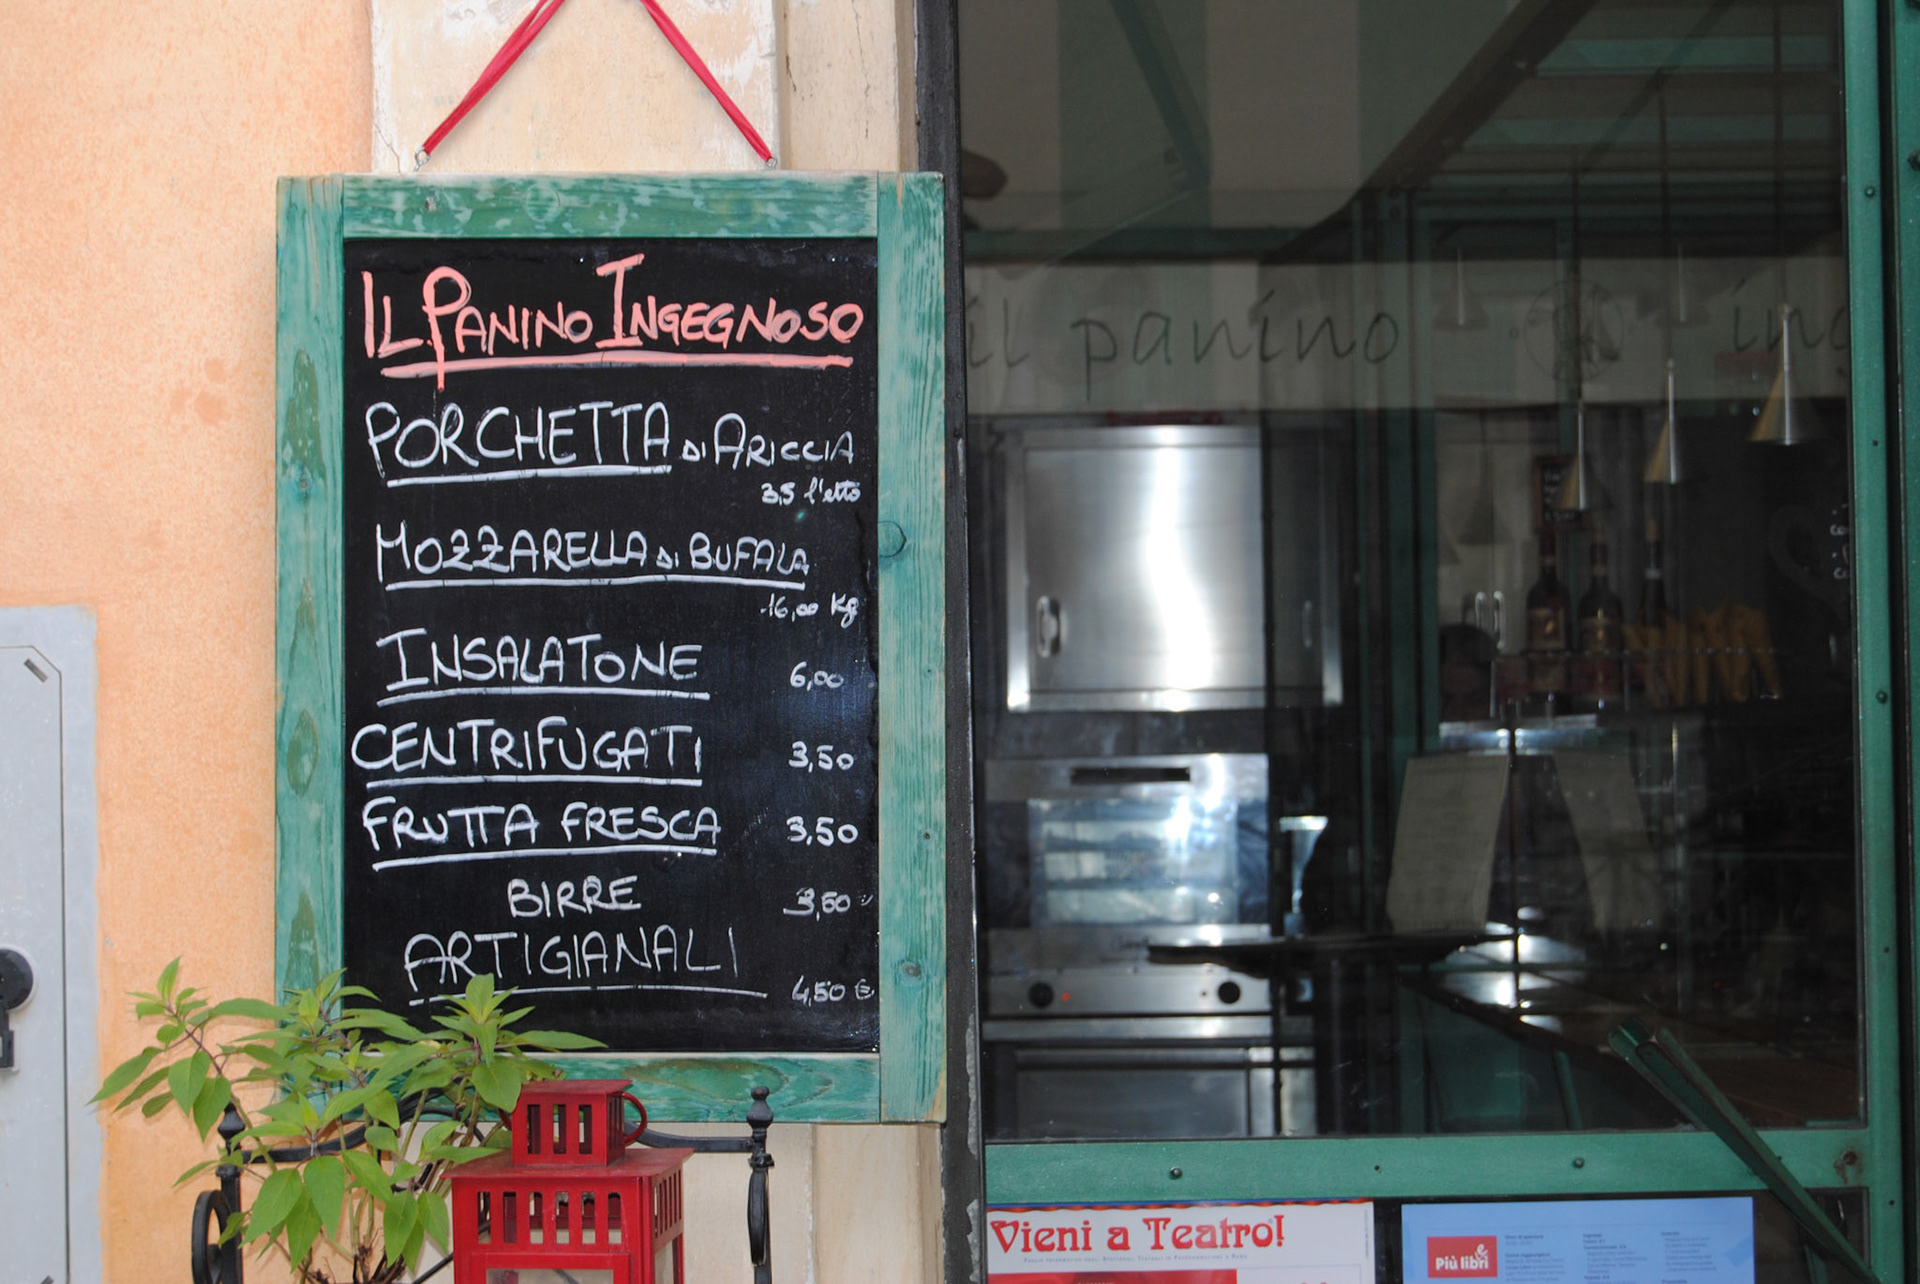 IL PANINO INGEGNOSO
PORCHETTA DI ARICCIA
3,5 l'etto
MOZZARELLA DI BUFALA
16,00 Kg
INSALATONE 6,00
CENTRIFUGATI 3,50
FRUTTA FRESCA 3,50
BIRRE 3,50
ARTIGIANALI
4,50 €
il panino ing
Vieni a Teatro!
Più libri